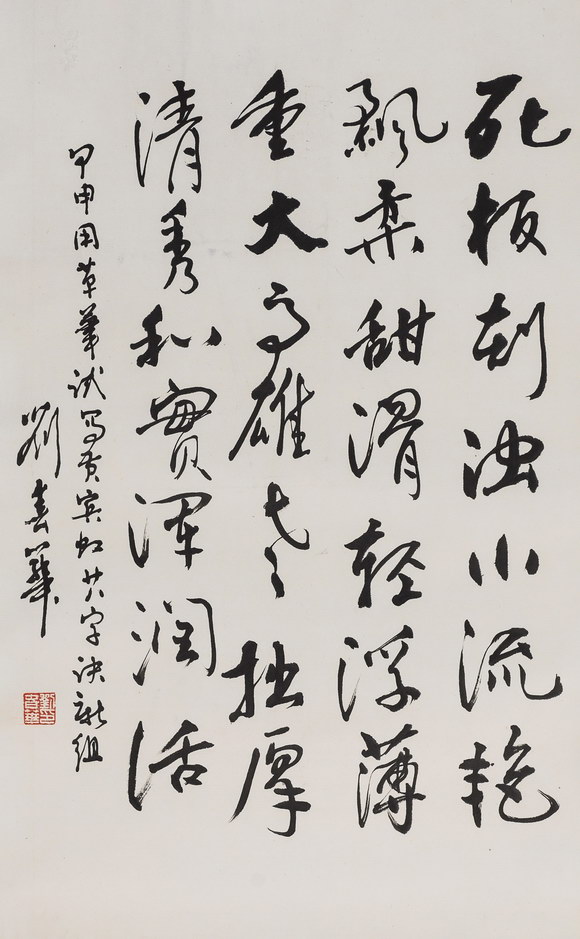 死板刻浊小流艳
飘柔甜滑轻浮薄
重大高雄老拙厚
清秀和實浑润活
甲申用草筆试写黄宾虹廿八字诀新组
劉春華